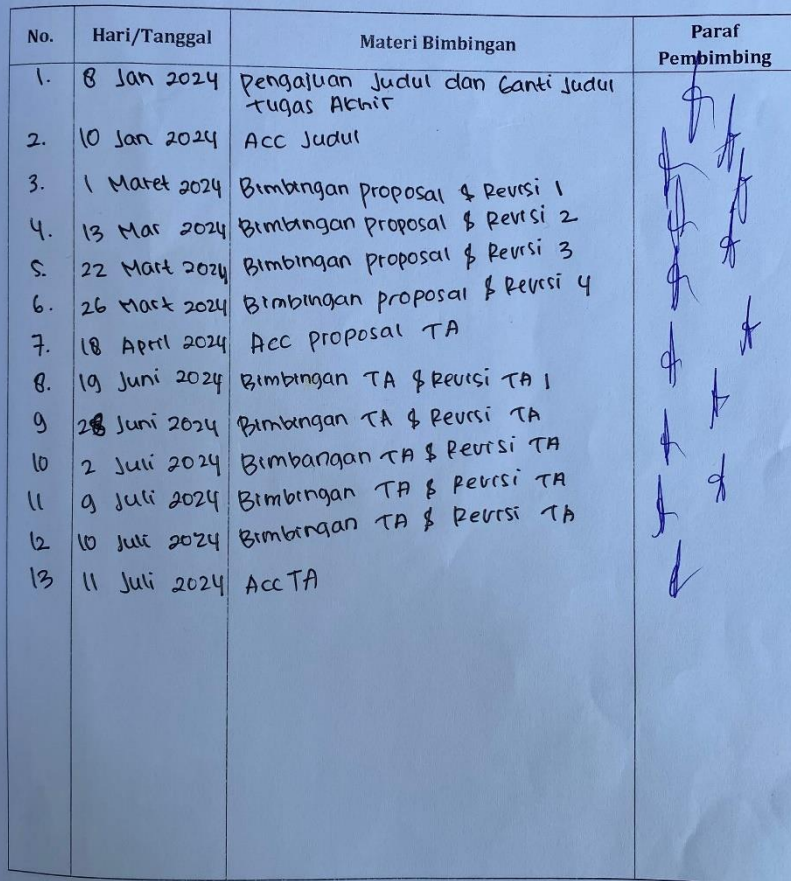 No. Hari/Tanggal Materi Bimbingan Paraf Pembimbing
1. 8 Jan 2024 Pengajuan Judul dan Ganti Judul
Tugas Akhir
2. 10 Jan 2024 Acc Judul
3. 1 Maret 2024 Bimbingan Proposal & Revisi 1
4. 13 Mar 2024 Bimbingan Proposal & Revisi 2
5. 22 Mart 2024 Bimbingan Proposal & Revisi 3
6. 26 Mart 2024 Bimbingan Proposal & Revisi 4
7. 18 April 2024 Acc Proposal TA
8. 19 Juni 2024 Bimbingan TA & Revisi TA 1
9 28 Juni 2024 Bimbingan TA & Revisi TA
10 2 Juli 2024 Bimbangan TA & Revisi TA
11 9 Juli 2024 Bimbingan TA & Revisi TA
12 10 Juli 2024 Bimbingan TA & Revisi TA
13 11 Juli 2024 Acc TA